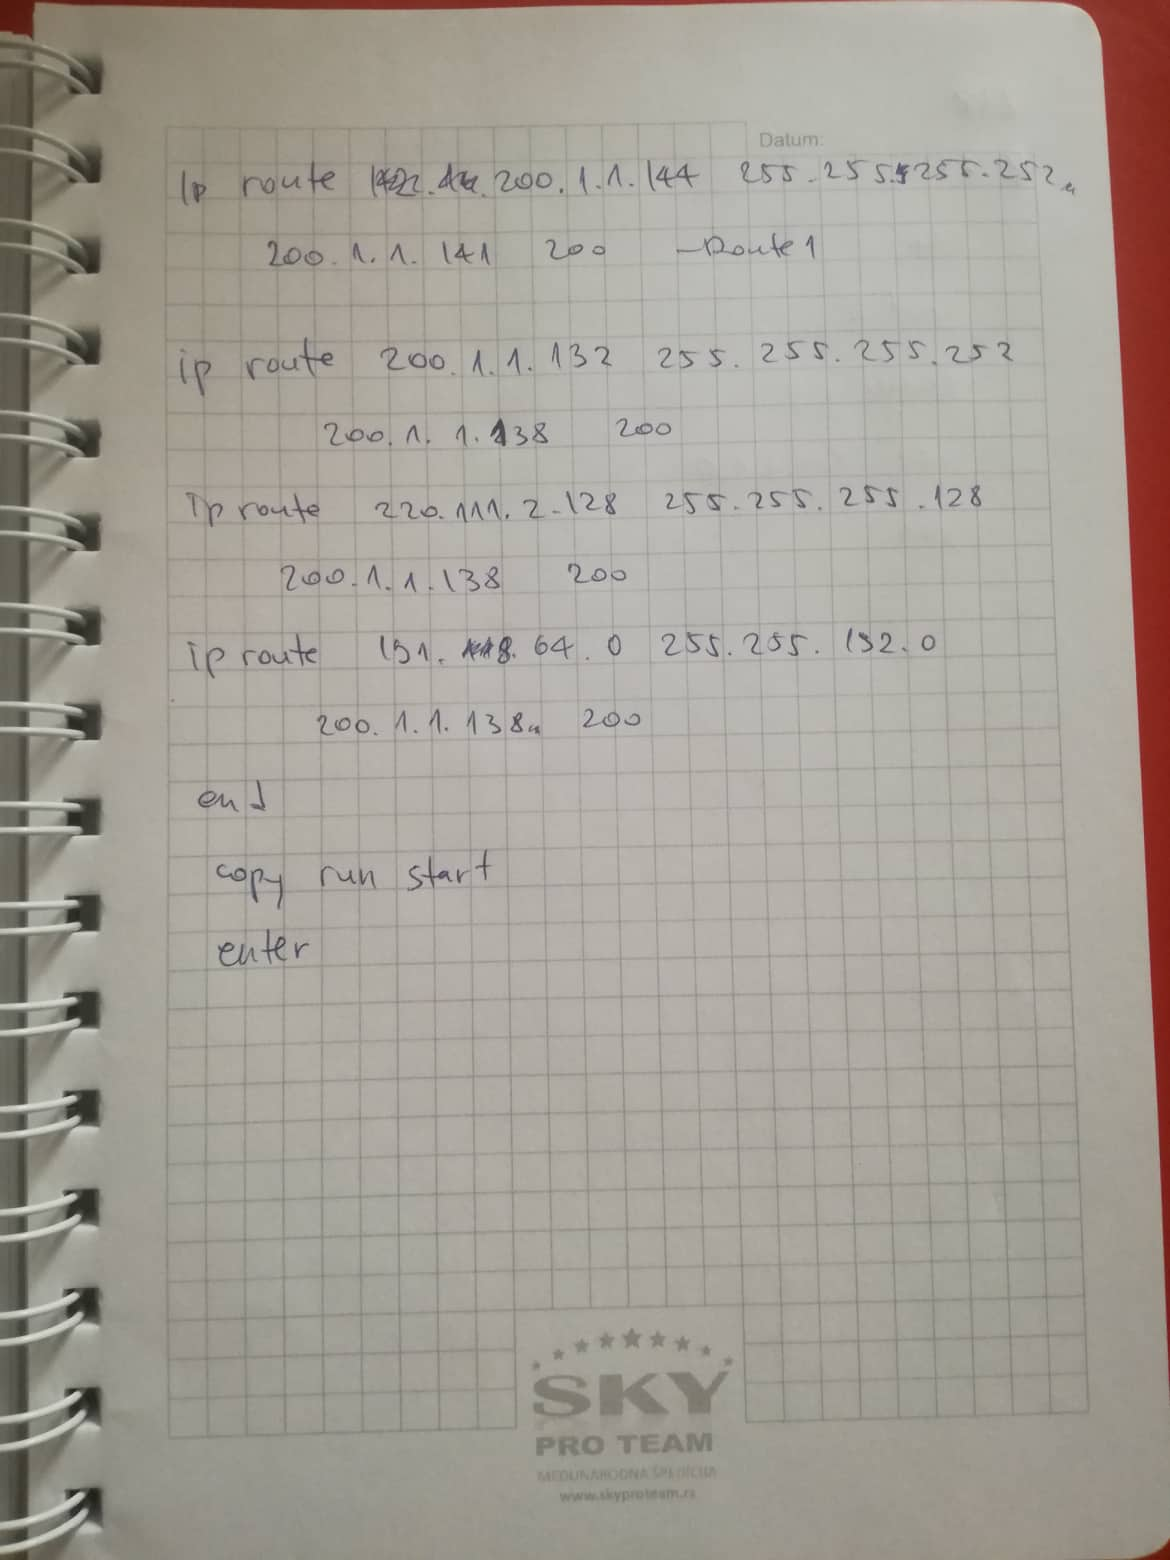 Datum:
Ip route 200.1.1.144 255.255.255.252
200.1.1.141 200 -Route 1
ip route 200.1.1.132 255.255.255.252
200.1.1.138 200
Ip route 220.111.2.128 255.255.255.128
200.1.1.138 200
ip route 191. 64.0 255.255.192.0
200.1.1.138 200
end
copy run start
enter
SKY
PRO TEAM
MEĐUNARODNA ŠPEDICIJA
www.skyproteam.rs